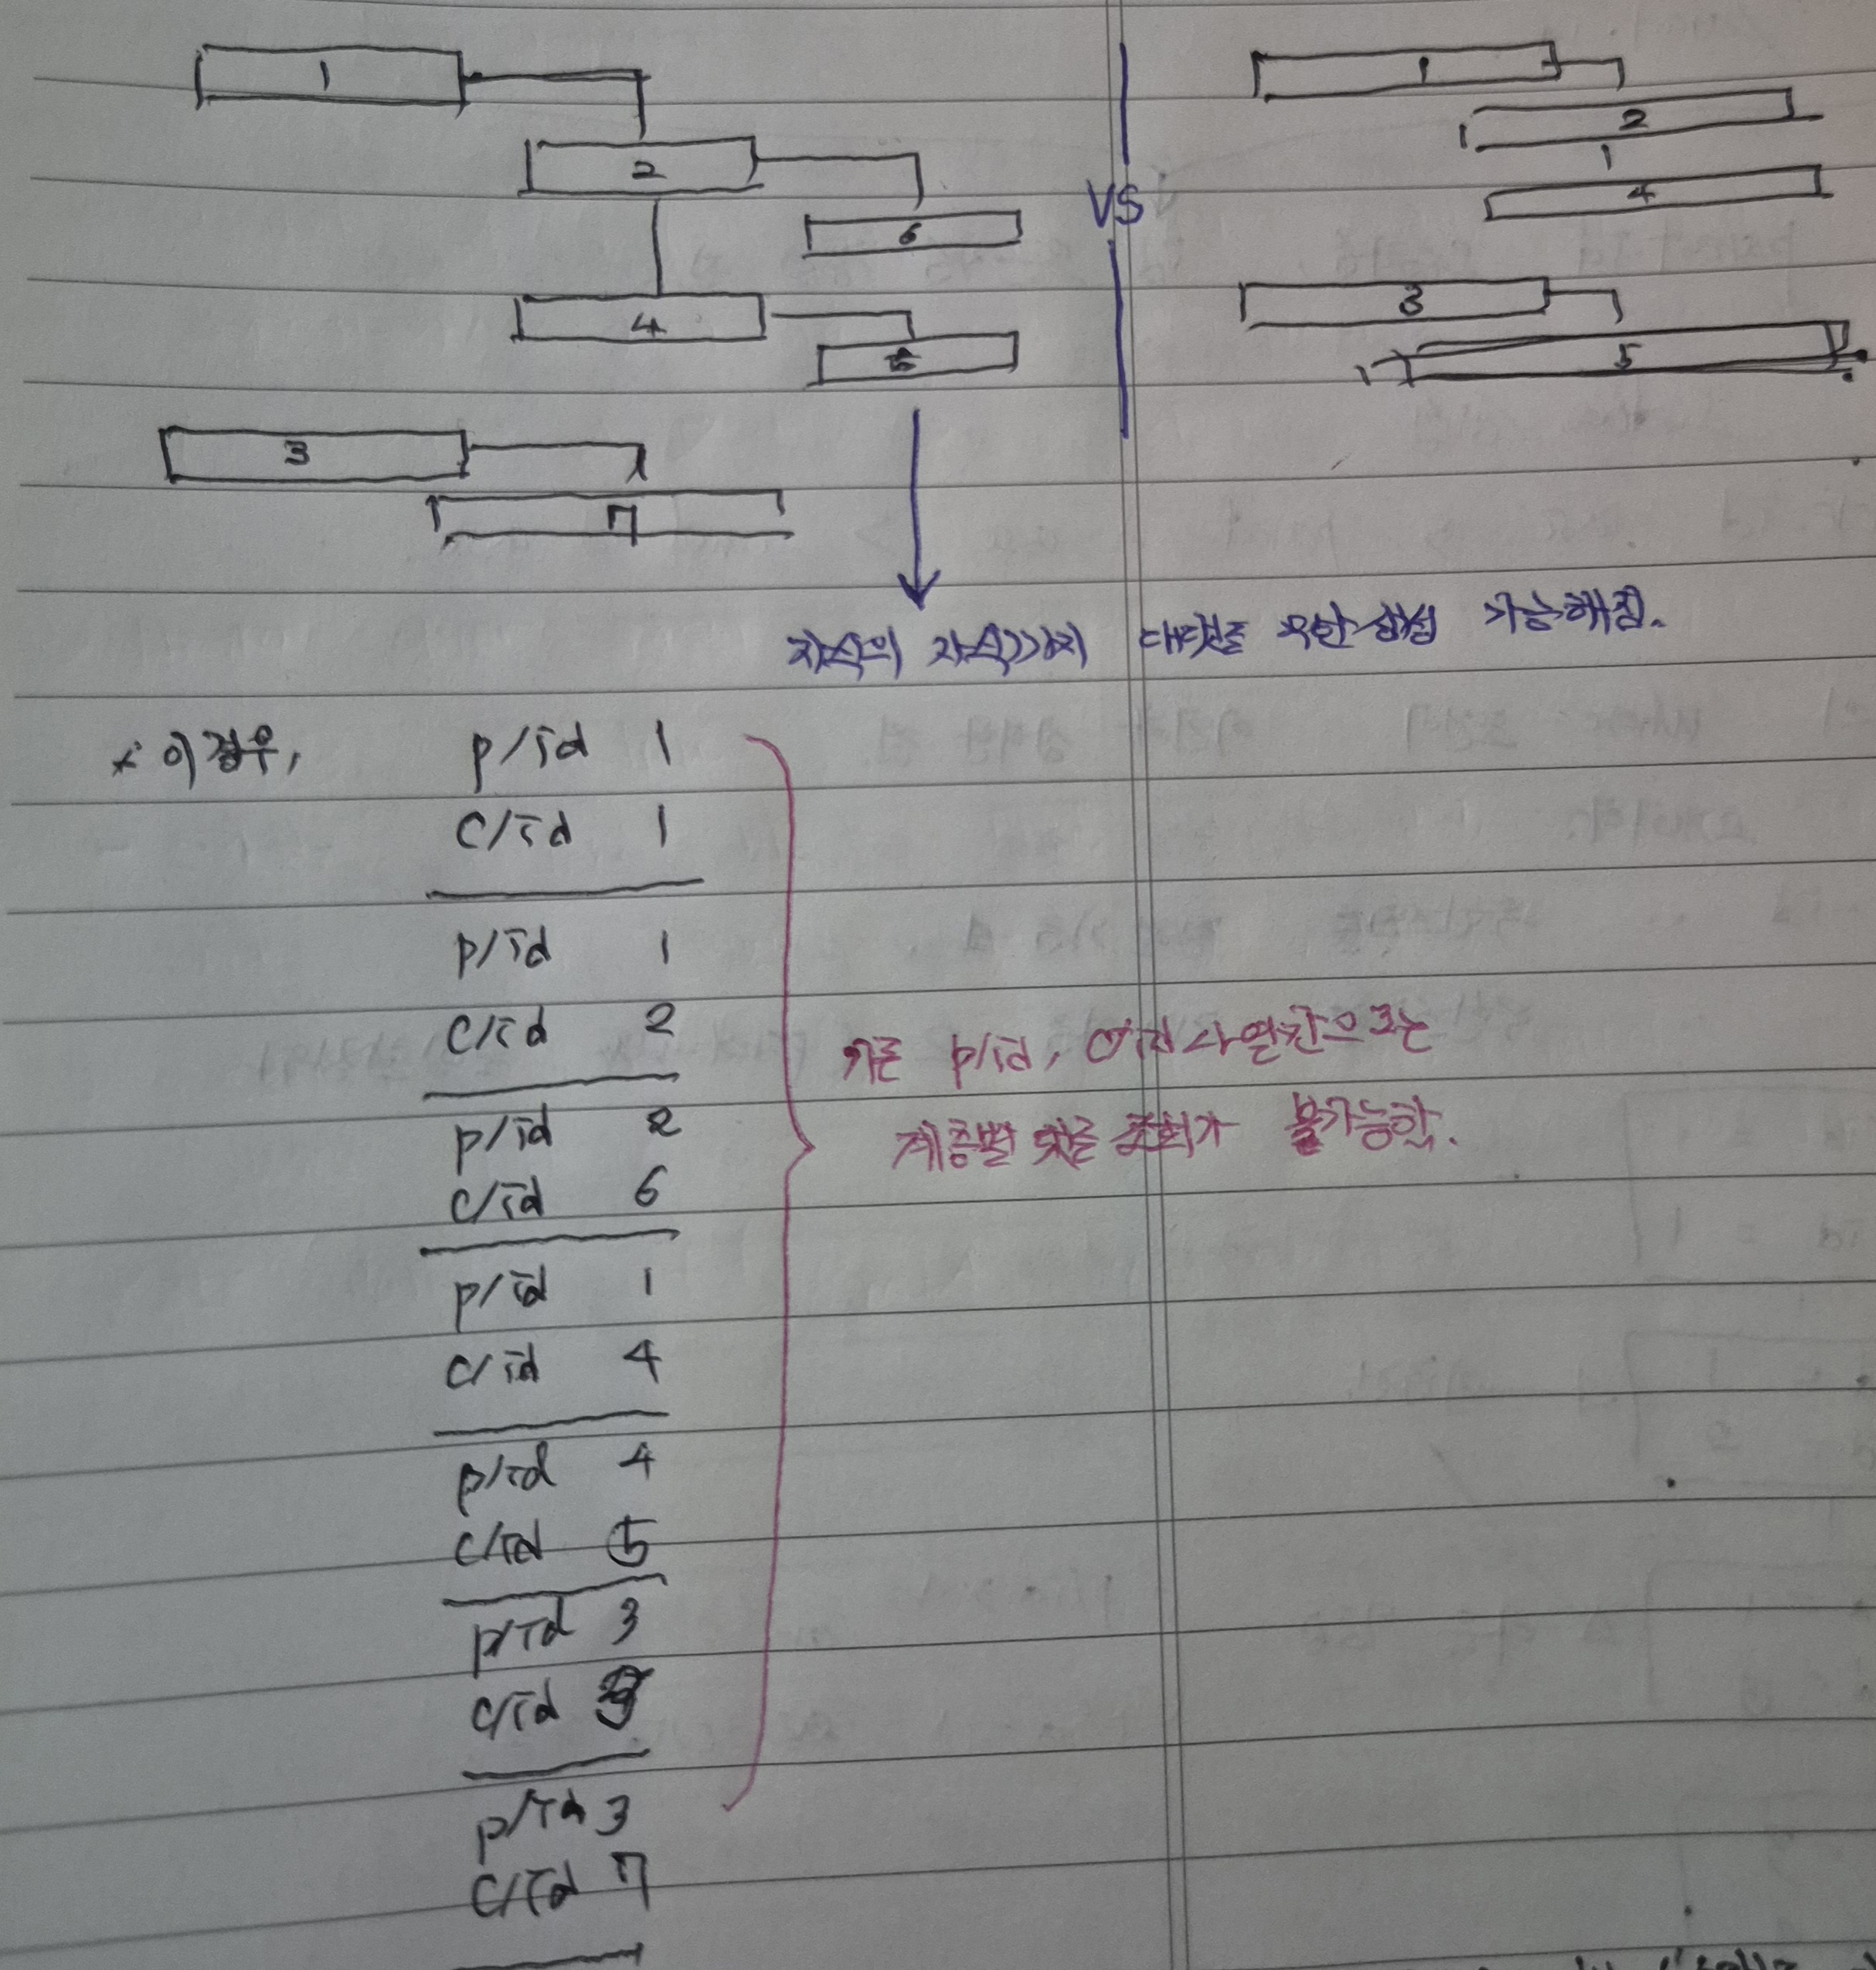 1
2
6
4
5
3
7
VS
1
2
4
3
5
자식의 자식까지 대댓글 무한생성 가능해짐.
* 이 경우,
p/id 1
c/id 1
p/id 1
c/id 2
p/id 2
c/id 6
p/id 1
c/id 4
p/id 4
c/id 5
p/id 3
c/id 3
p/id 3
c/id 7
기존 p/id, c/id 나열만으로는
계층별 댓글 조회가 불가능함.